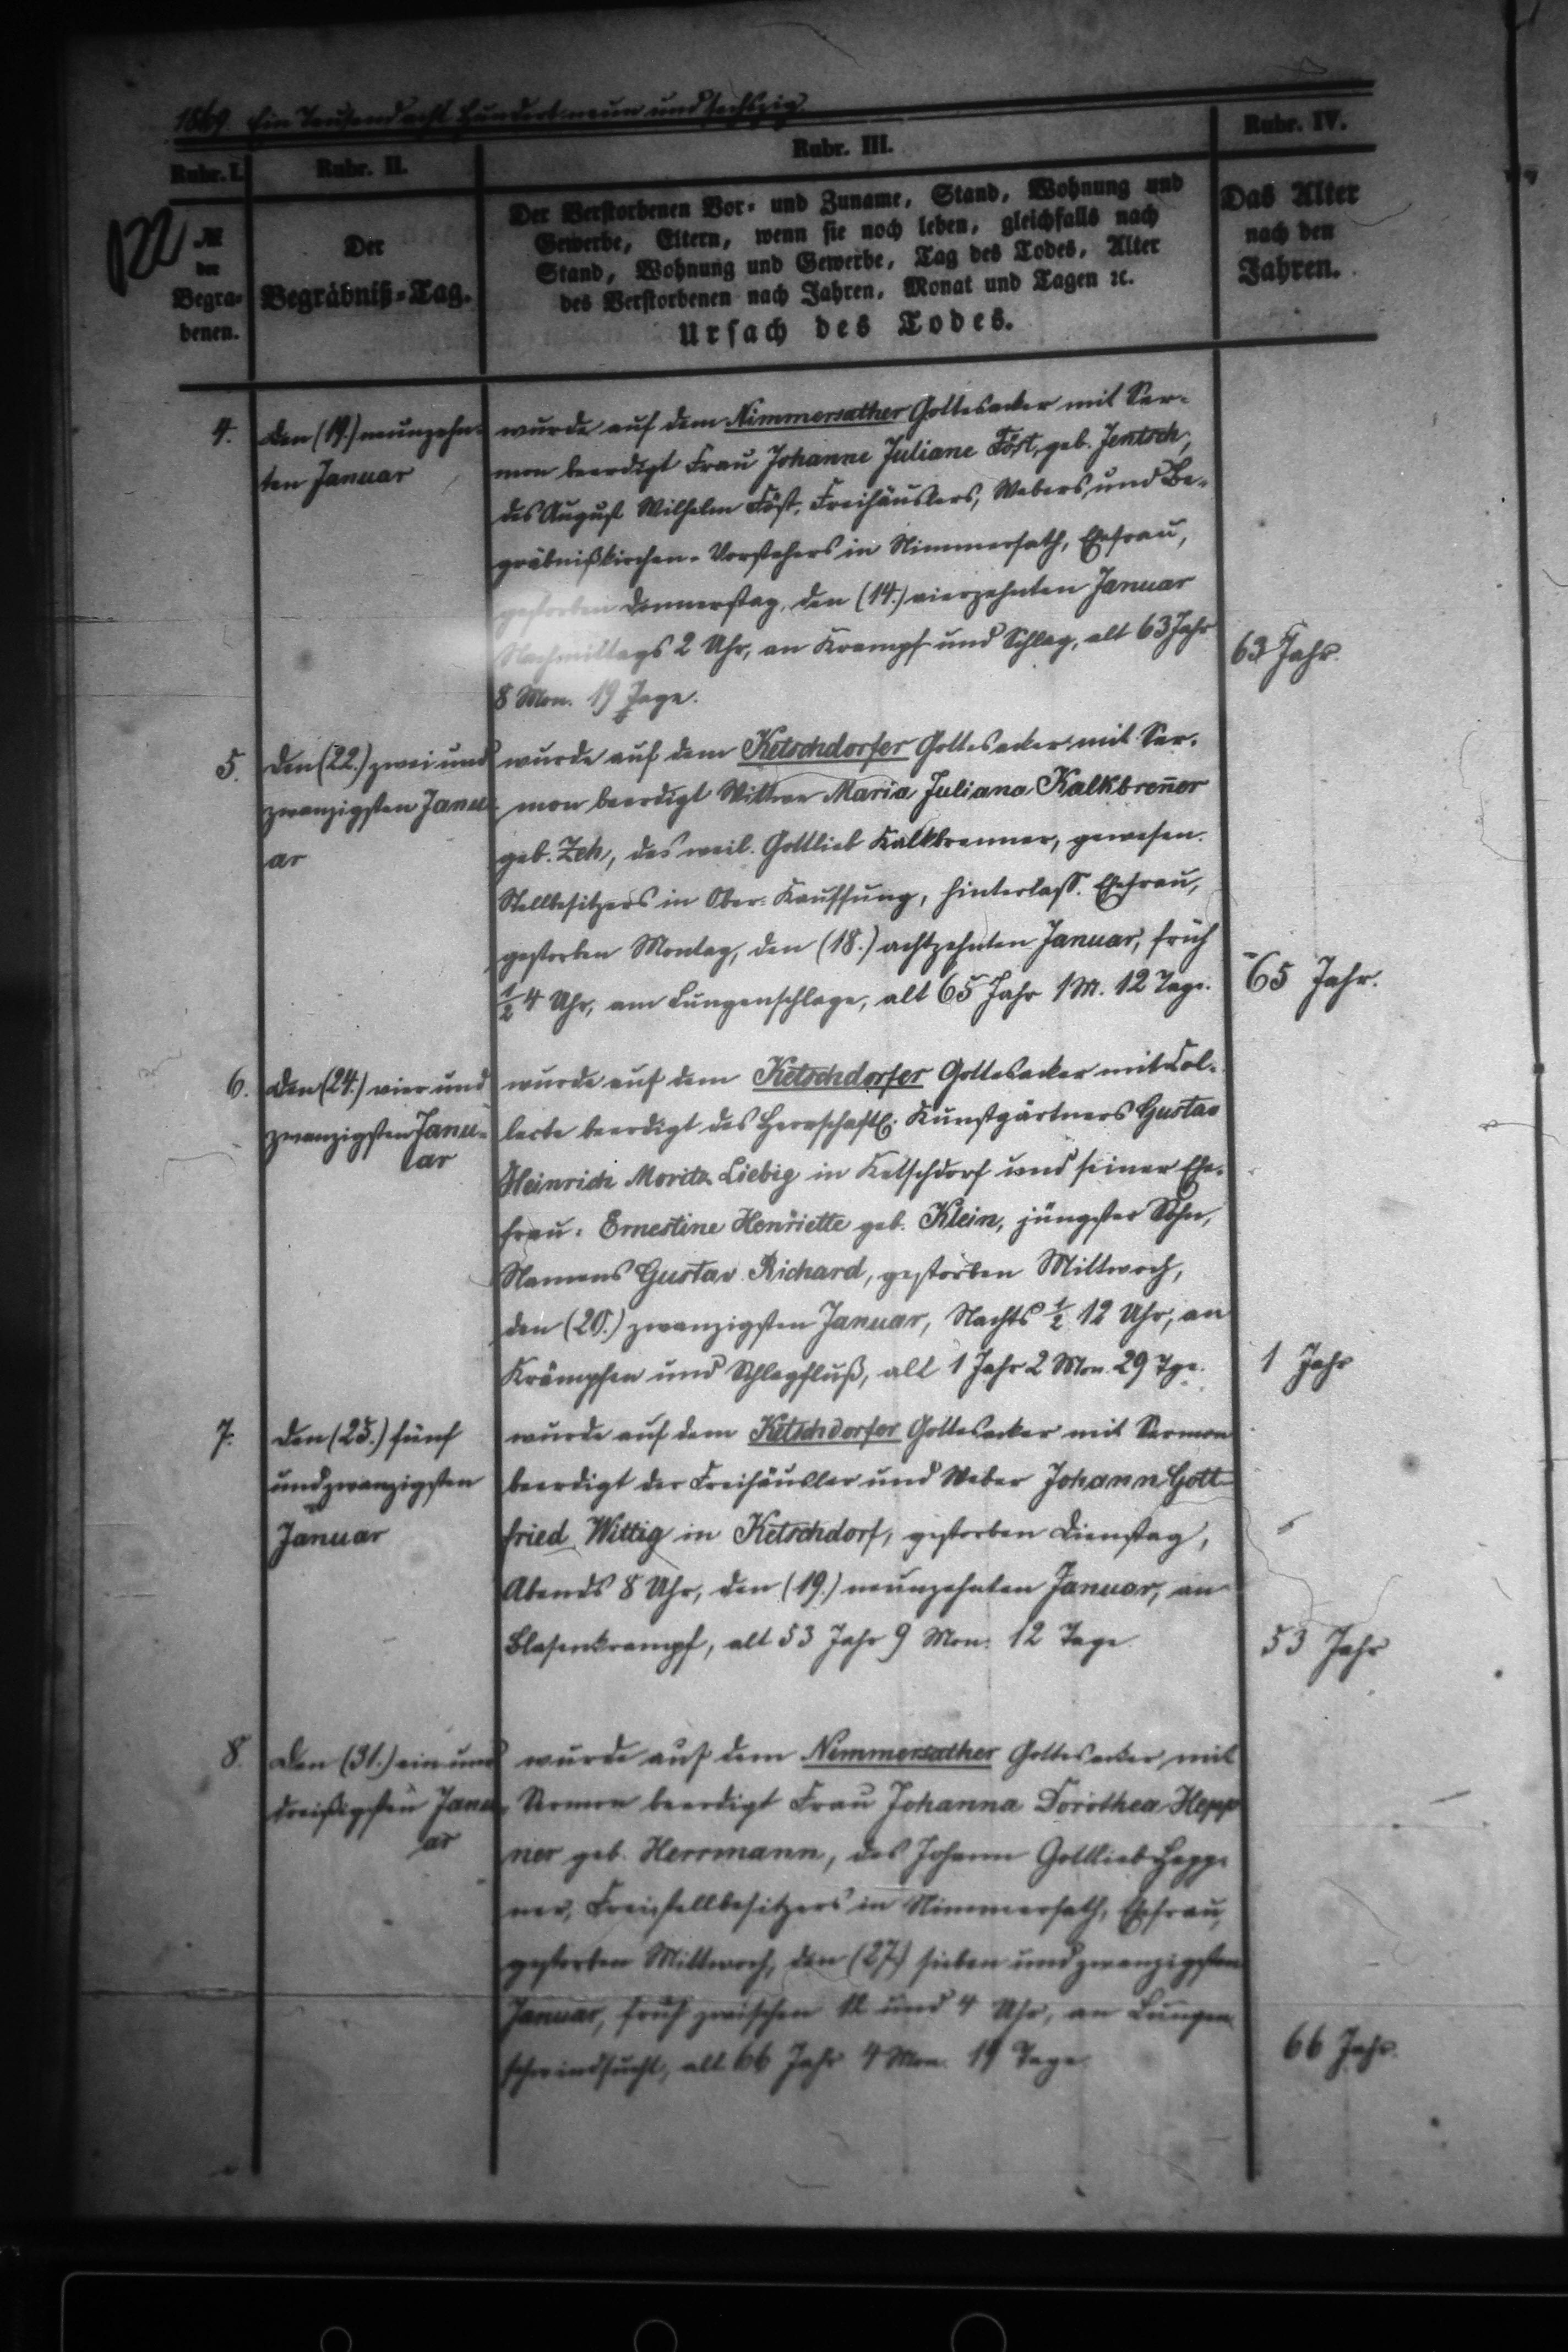 1869. Ein Tausend acht Hundert neun und sechszig.
Rubr. I.
Rubr. II.
Rubr. III.
Rubr. IV.
122
№
der
Begra-
benen.
Der
Begräbniß-Tag.
Der Verstorbenen Vor- und Zuname, Stand, Wohnung und
Gewerbe, Eltern, wenn sie noch leben, gleichfalls nach
Stand, Wohnung und Gewerbe, Tag des Todes, Alter
des Verstorbenen nach Jahren, Monat und Tagen ꝛc.
Ursach des Todes.
Das Alter
nach den
Jahren.
4.
den (19.) neunzehn-
ten Januar
wurde auf dem Nimmersather Gottesacker mit Ser-
mon beerdigt Frau Johanne Juliane Föst, geb. Jentsch,
des August Wilhelm Föst, Freihäuslers, Webers und Be-
gräbnißkirchen-Vorstehers in Nimmersath, Ehefrau,
gestorben Donnerstag, den (14.) vierzehnten Januar
Nachmittags 2 Uhr, an Krampf und Schlag, alt 63 Jahr
8 Mon. 19 Tage.
63 Jahr.
5.
den (22.) zwei und
zwanzigsten Janu-
ar
wurde auf dem Ketschdorfer Gottesacker mit Ser-
mon beerdigt Wittwe Maria Juliana Kalkbren̄er
geb. Zeh, des weil. Gottlieb Kalkbrenner, gewesen.
Stellbesitzers in Ober-Kauffung, hinterlass. Ehefrau,
gestorben Montag, den (18.) achtzehnten Januar, früh
½ 4 Uhr, am Lungenschlage, alt 65 Jahr 1 M. 12 Tage.
65 Jahr.
6.
den (24.) vier und
zwanzigsten Janu-
ar
wurde auf dem Ketschdorfer Gottesacker mit Col-
lecte beerdigt des herrschaftl. Kunstgärtners Gustav
Heinrich Moritz Liebig in Ketschdorf und seiner Ehe-
frau: Ernestine Henriette geb. Klein, jüngster Sohn,
Namens Gustav Richard, gestorben Mittwoch,
den (20.) zwanzigsten Januar, Nachts ½ 12 Uhr, an
Krämpfen und Schlagfluß, alt 1 Jahr 2 Mon. 29 Tge.
1 Jahr
7.
den (25.) fünf
und zwanzigsten
Januar
wurde auf dem Ketschdorfer Gottesacker mit Sermon
beerdigt der Freihäusler und Weber Johann Gott-
fried Wittig in Ketschdorf, gestorben Dienstag,
Abends 8 Uhr, den (19.) neunzehnten Januar, an
Blasenkrampf, alt 53 Jahr 9 Mon. 12 Tage.
53 Jahr
8.
den (31.) ein und
dreißigsten Janu-
ar
wurde auf dem Nimmersather Gottesacker mit
Sermon beerdigt Frau Johanna Dorothea Hepp
ner geb. Herrmann, des Johann Gottlieb Hepp-
ner, Freistellbesitzers in Nimmersath, Ehefrau,
gestorben Mittwoch, den (27.) sieben und zwanzigsten
Januar, früh zwischen 12 und 4 Uhr, an Lungen
schwindsucht, alt 66 Jahr 4 Mon. 19 Tage.
66 Jahr.